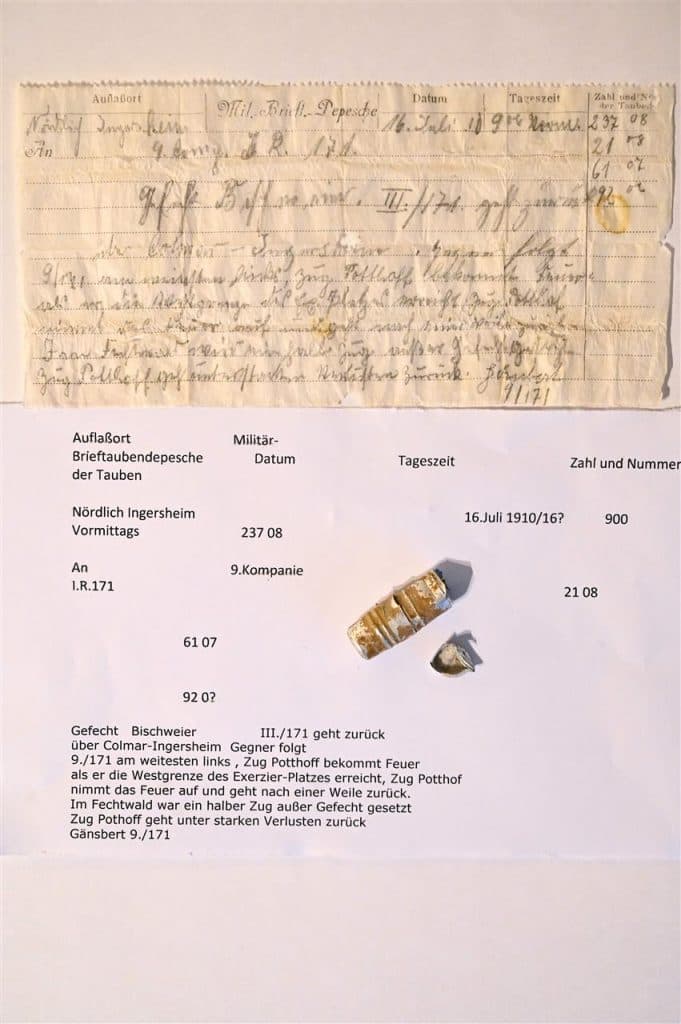 Auflaßort Mil.-Brieft.-Depesche Datum Tageszeit Zahl und No
der Tauben
Nördlich Ingersheim 16. Juli 9 00 237 08
An 9. Komp. I. R. 171. 21 08
61 07
Gefecht III./171. geht zurück 92
über Colmar – Ingersheim. Gegner folgt
9/171 am weitesten links Zug Potthoff bekommt Feuer
als er die Westgrenze des Ex. Platzes erreicht, Zug Potthof
nimmt das Feuer auf und geht nach einer Weile zurück.
Im Fechtwald ein halber Zug außer Gefecht gesetzt
Zug Potthoff geht unter starken Verlusten zurück.
9/171
Auflaßort Militär-
Brieftaubendepesche Datum Tageszeit Zahl und Nummer
der Tauben
Nördlich Ingersheim 16.Juli 1910/16? 900
Vormittags 237 08
An 9.Kompanie
I.R.171 21 08
61 07
92 0?
Gefecht Bischweier III./171 geht zurück
über Colmar-Ingersheim Gegner folgt
9./171 am weitesten links , Zug Potthoff bekommt Feuer
als er die Westgrenze des Exerzier-Platzes erreicht, Zug Potthof
nimmt das Feuer auf und geht nach einer Weile zurück.
Im Fechtwald war ein halber Zug außer Gefecht gesetzt
Zug Pothoff geht unter starken Verlusten zurück
Gänsbert 9./171